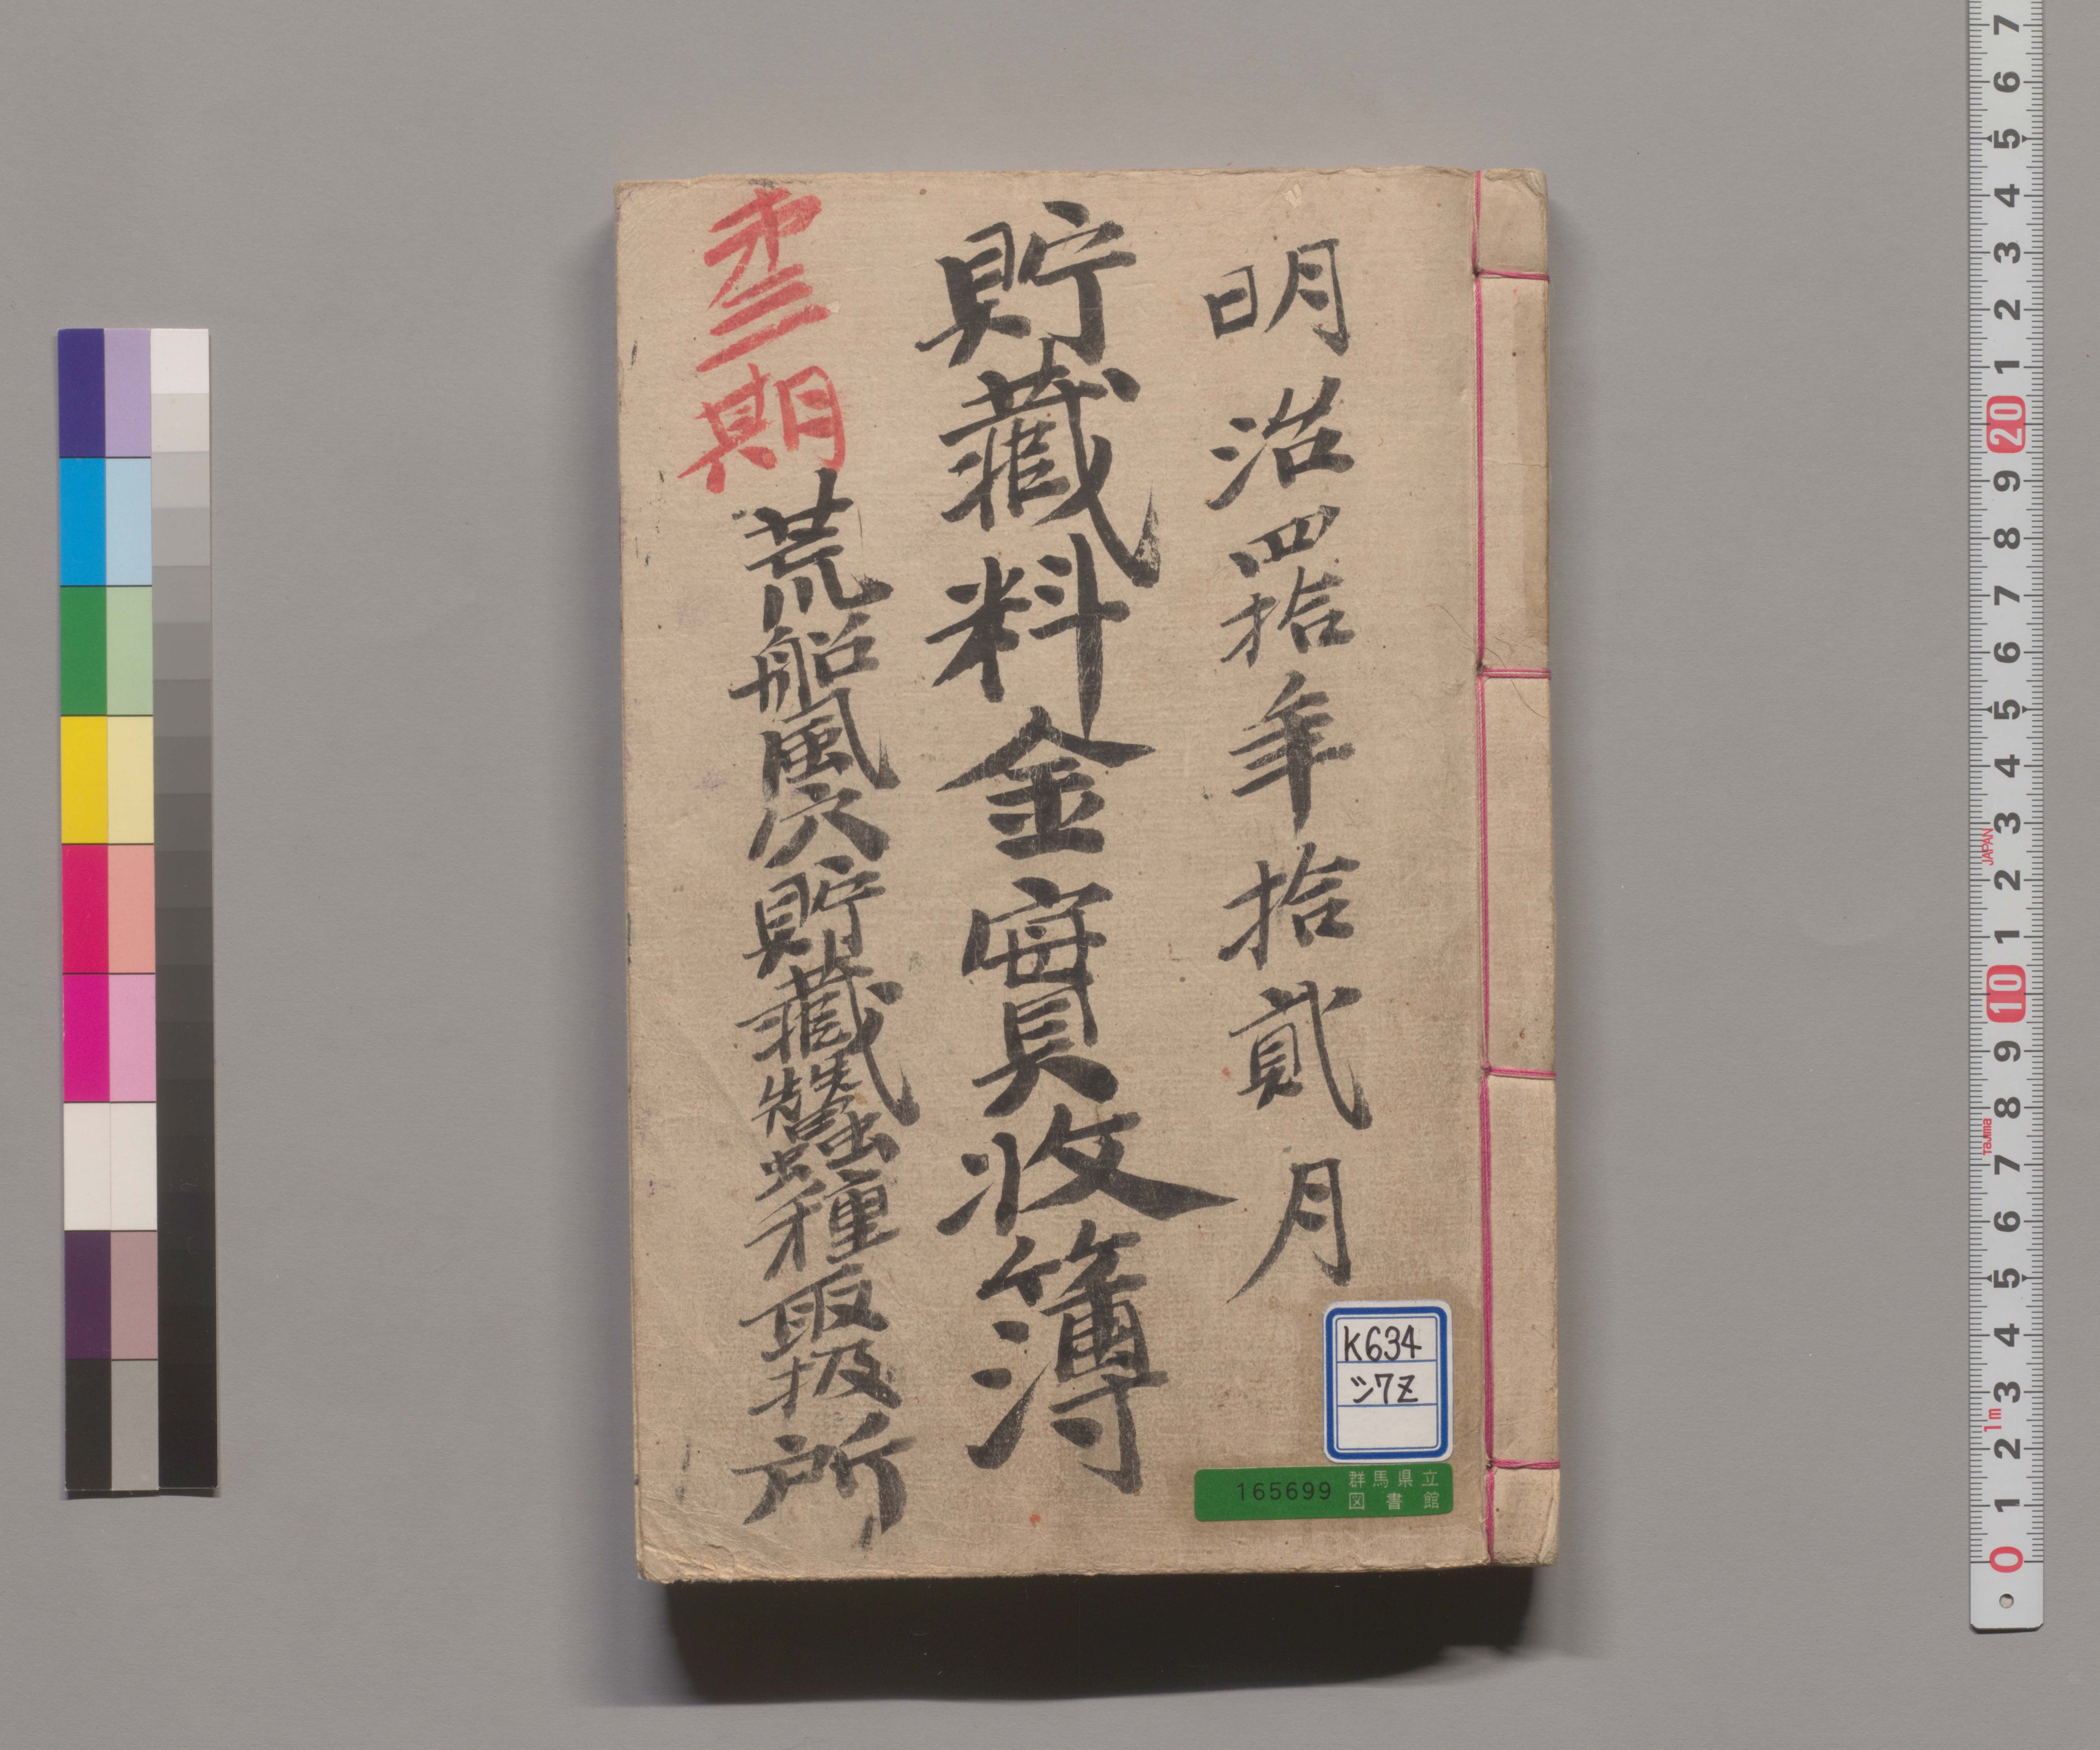 明治四拾年拾貳月
貯藏料金實收簿
第三期
荒船風穴貯藏蠶種取扱所
K634
シ7Z
165699 群馬県立
図書館
7 6 5 4 3 2 1 20 9 8 7 6 5 4 3 2 1 10 9 8 7 6 5 4 3 2 1 0
JAPAN
Tajima
1m